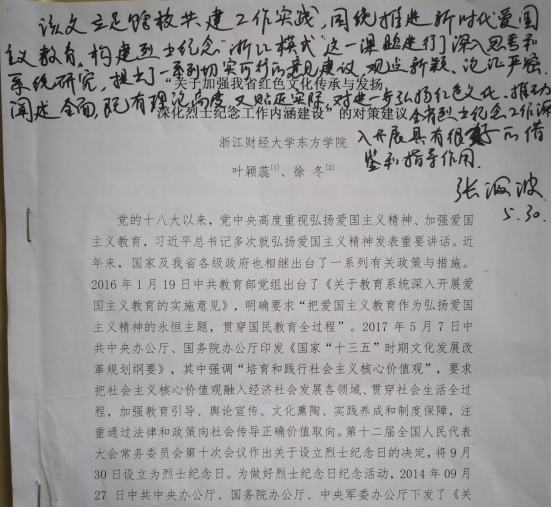 该文立足馆校共建工作实践，围绕推进新时代爱国
主义教育、构建烈士纪念“浙江模式”这一课题进行了深入思考和
系统研究，提出了一系列切实可行的意见建议，观点新颖、论证严密、
“关于加强我省红色文化传承与发扬
阐述全面，既有理论高度，又贴近实际，对进一步弘扬红色文化、推动
深化烈士纪念工作内涵建设”的对策建议
全省烈士纪念工作深
入开展具有很好的借
浙江财经大学东方学院
鉴和指导作用。
叶颖蕊[1]、徐 冬[2]
5.30.
党的十八大以来，党中央高度重视弘扬爱国主义精神、加强爱国
主义教育，习近平总书记多次就弘扬爱国主义精神发表重要讲话。近
年来，国家及我省各级政府也相继出台了一系列有关政策与措施。
2016 年 1 月 19 日中共教育部党组出台了《关于教育系统深入开展爱
国主义教育的实施意见》，明确要求“把爱国主义教育作为弘扬爱国
主义精神的永恒主题，贯穿国民教育全过程”。2017 年 5 月 7 日中
共中央办公厅、国务院办公厅印发《国家“十三五”时期文化发展改
革规划纲要》，其中强调“培育和践行社会主义核心价值观”，要求
把社会主义核心价值观融入经济社会发展各领域、贯穿社会生活全过
程，加强教育引导、舆论宣传、文化熏陶、实践养成和制度保障，注
重通过法律和政策向社会传导正确价值取向。第十二届全国人民代表
大会常务委员会第十次会议作出关于设立烈士纪念日的决定，将 9 月
30 日设立为烈士纪念日。为做好烈士纪念日纪念活动，2014 年 09 月
27 日中共中央办公厅、国务院办公厅、中央军委办公厅下发了《关